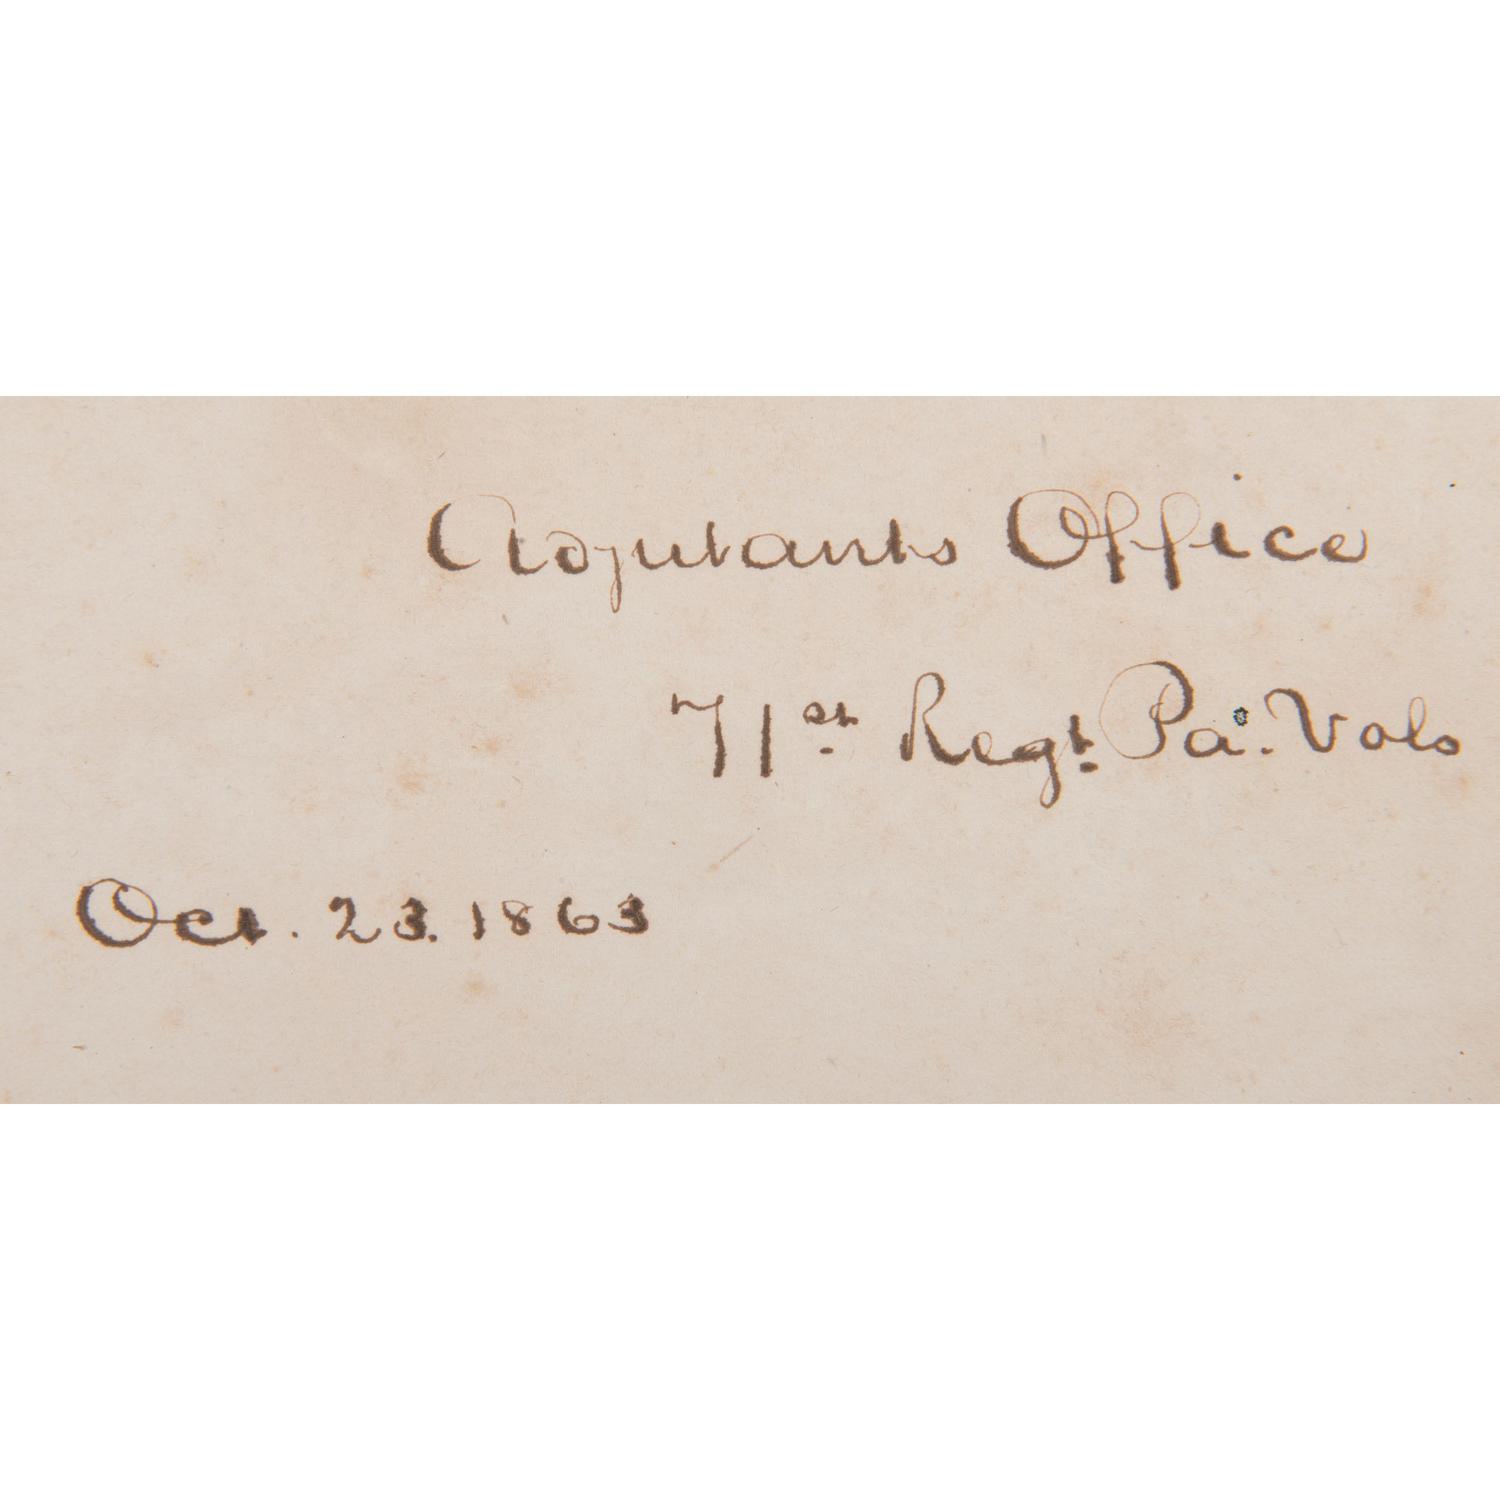 Adjutants Office
71st Regt. Pa. Vols
Oct. 23. 1863